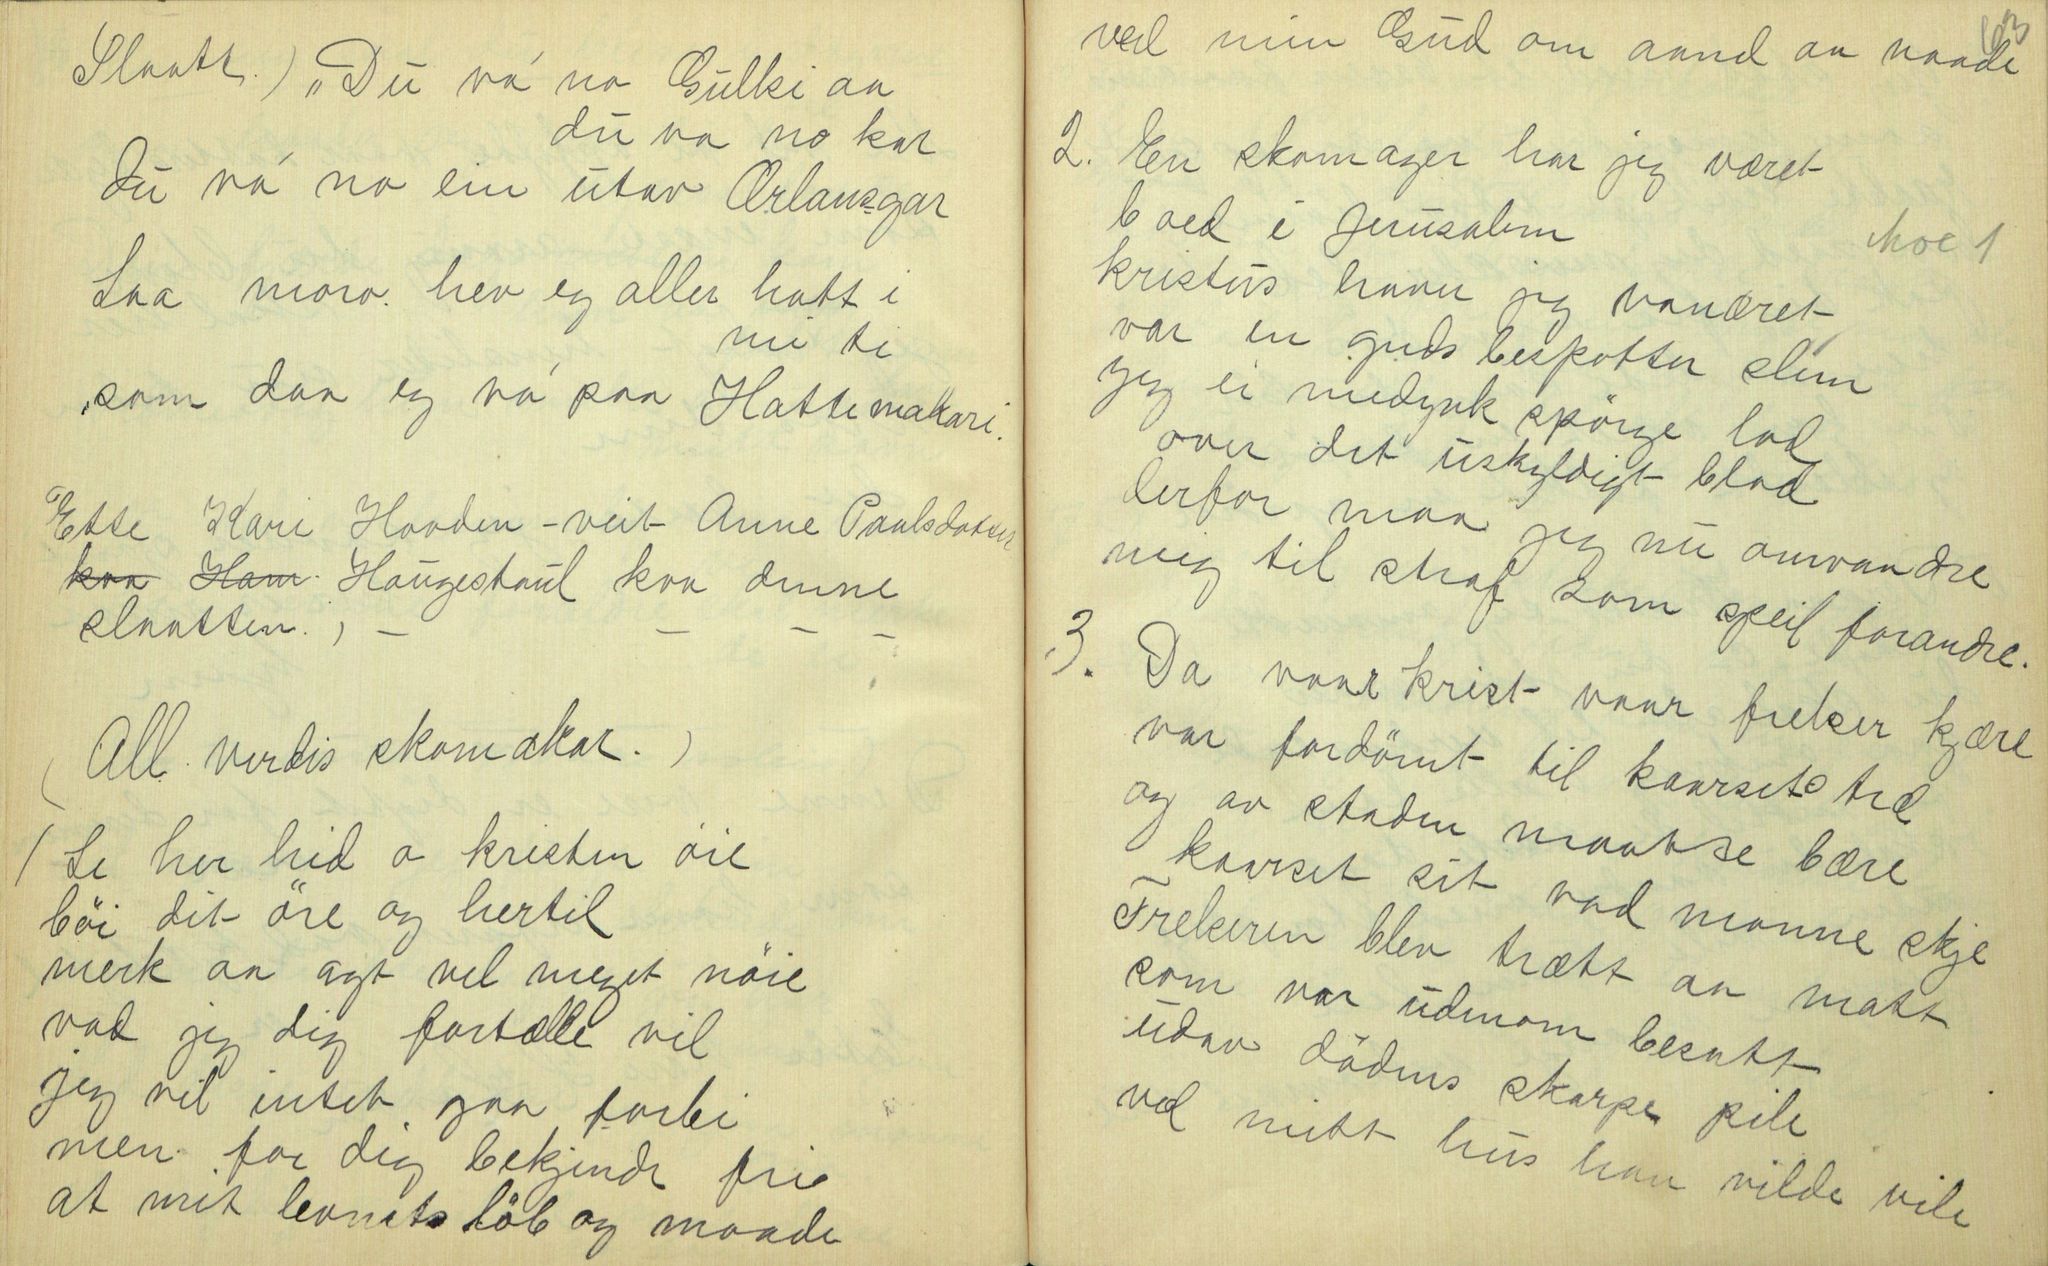 Slaatt.) „Du va' no Gulki aa
du va no kar
du va' no ein utav Ørlansgar
Saa moro. hev eg aller hatt i
mi ti
som daa eg va' paa Hattemakari.
"Ette Kari Hovden - veit Anne Paulsdotter
kaa Ham Haugestaul kaa denne
slaatten.,  –  –  –  –
(All verdis skomakar.)
1 Se her hid o kristen öie
böi dit öre og hertil
merk aa agt vel meget nöie
vad jeg dig fortælle vil
jeg vil intet gaa forbi
men for dig bekjende fri
at mit levnets löb og maade
63
ved min Gud om aand aa naade
2. En skomager har jeg været
boed i Jerusalem
Moe 1
kristus haver jeg vanæret
var en guds bespotter slem
jeg ei medynk spörge lod
over det uskyldigt blod
derfor maa jeg nu omvandre
mig til straf som speil forandre.
3. Da vaar krist vaar frelser kjære
var fordömt til kaarsets træ
og av staden maatte bære
kaarset sit vad monne skje
Frelseren blev trætt aa matt
som var udmom besatt
udav dödens skarpe pile
ved mitt hus han vilde vile